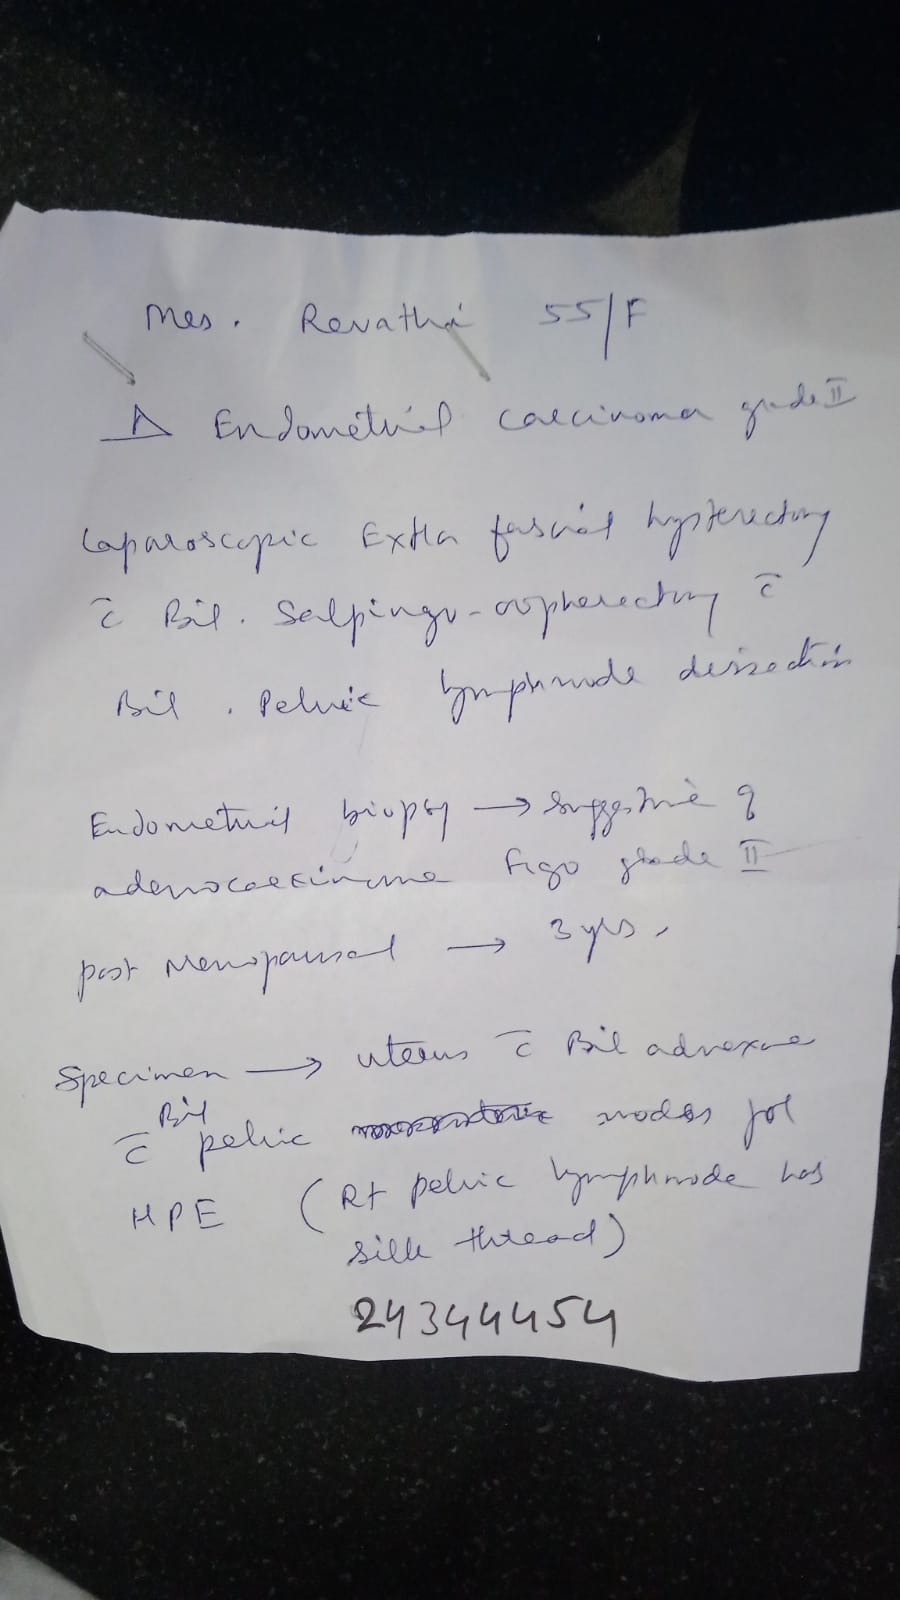 Mrs. Revathi 55/F
Δ Endometrial carcinoma grade II
Laparoscopic Extra fascial hysterectomy
c̄ Bil. Salpingo-oopherectomy c̄
Bil. Pelvic lymphnode dissection
Endometrial biopsy → suggestive of
adenocarcinoma Figo grade II
post Menopausal → 3 yrs.
Specimen → uterus c̄ Bil adnexae
c̄ Bil pelvic nodes for
HPE (Rt pelvic lymphnode has
silk thread)
24344454